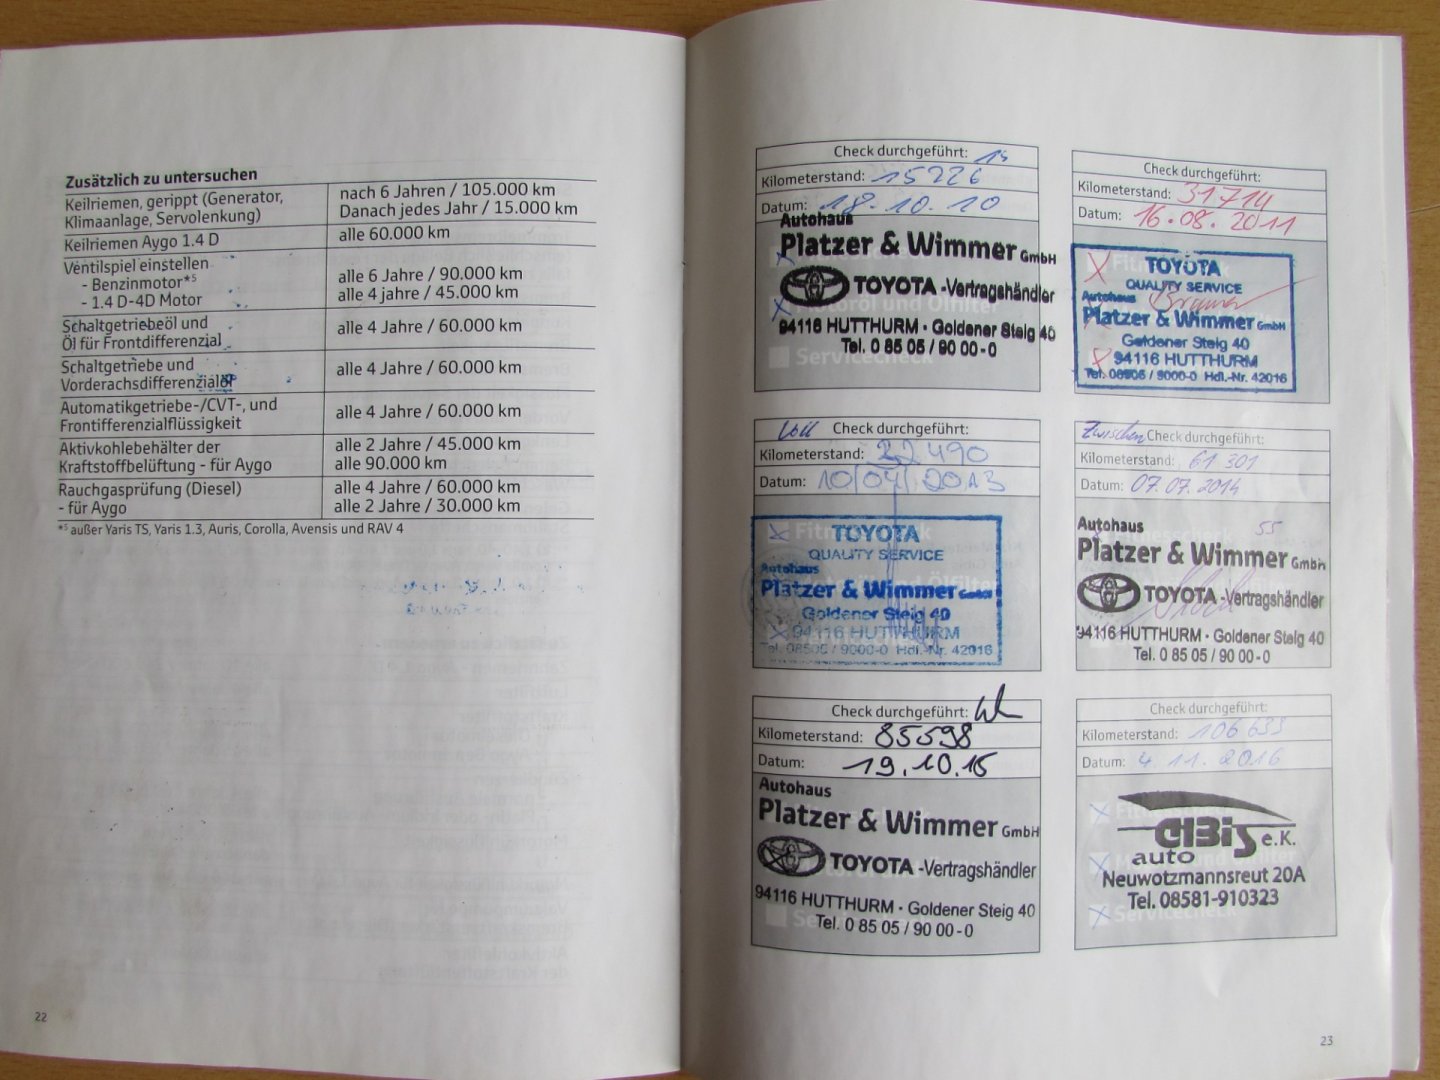 Zusätzlich zu untersuchen
Keilriemen, gerippt (Generator, Klimaanlage, Servolenkung)
nach 6 Jahren / 105.000 km
Danach jedes Jahr / 15.000 km
Keilriemen Aygo 1.4 D
alle 60.000 km
Ventilspiel einstellen
- Benzinmotor*⁵
alle 6 Jahre / 90.000 km
- 1.4 D-4D Motor
alle 4 jahre / 45.000 km
Schaltgetriebeöl und
Öl für Frontdifferenzial
alle 4 Jahre / 60.000 km
Schaltgetriebe und
Vorderachsdifferenzialöl
alle 4 Jahre / 60.000 km
Automatikgetriebe-/CVT-, und
Frontifferenzialflüssigkeit
alle 4 Jahre / 60.000 km
Aktivkohlebehälter der
Kraftstoffbelüftung - für Aygo
alle 2 Jahre / 45.000 km
alle 90.000 km
Rauchgasprüfung (Diesel)
- für Aygo
alle 4 Jahre / 60.000 km
alle 2 Jahre / 30.000 km
*⁵ außer Yaris TS, Yaris 1.3, Auris, Corolla, Avensis und RAV 4
22
Check durchgeführt: 15
Kilometerstand: 15226
Datum: 18.10.10
Autohaus
Platzer & Wimmer GmbH
TOYOTA -Vertragshändler
94116 HUTTHURM · Goldener Steig 40
Tel. 0 85 05 / 90 00-0
Servicecheck
Check durchgeführt:
Kilometerstand: 31714
Datum: 16.08.2011
TOYOTA
QUALITY SERVICE
Autohaus
Platzer & Wimmer GmbH
Goldener Steig 40
94116 HUTTHURM
Tel. 08505 / 9000-0 Hdl.-Nr. 42016
Voll Check durchgeführt:
Kilometerstand: 22490
Datum: 10/04/2013
TOYOTA
QUALITY SERVICE
Autohaus
Platzer & Wimmer GmbH
Goldener Steig 40
94116 HUTTHURM
Tel. 08505 / 9000-0 Hdl.-Nr. 42016
Zwischen Check durchgeführt:
Kilometerstand: 61 301
Datum: 07.07.2014
55
Autohaus
Platzer & Wimmer GmbH
TOYOTA -Vertragshändler
94116 HUTTHURM · Goldener Steig 40
Tel. 0 85 05 / 90 00-0
Check durchgeführt:
Kilometerstand: 85598
Datum: 19.10.15
Autohaus
Platzer & Wimmer GmbH
TOYOTA -Vertragshändler
94116 HUTTHURM · Goldener Steig 40
Tel. 0 85 05 / 90 00-0
Check durchgeführt:
Kilometerstand: 106 633
Datum: 4.11.2016
CIBIS e.K.
auto
Neuwotzmannsreut 20A
Tel. 08581-910323
Servicecheck
23